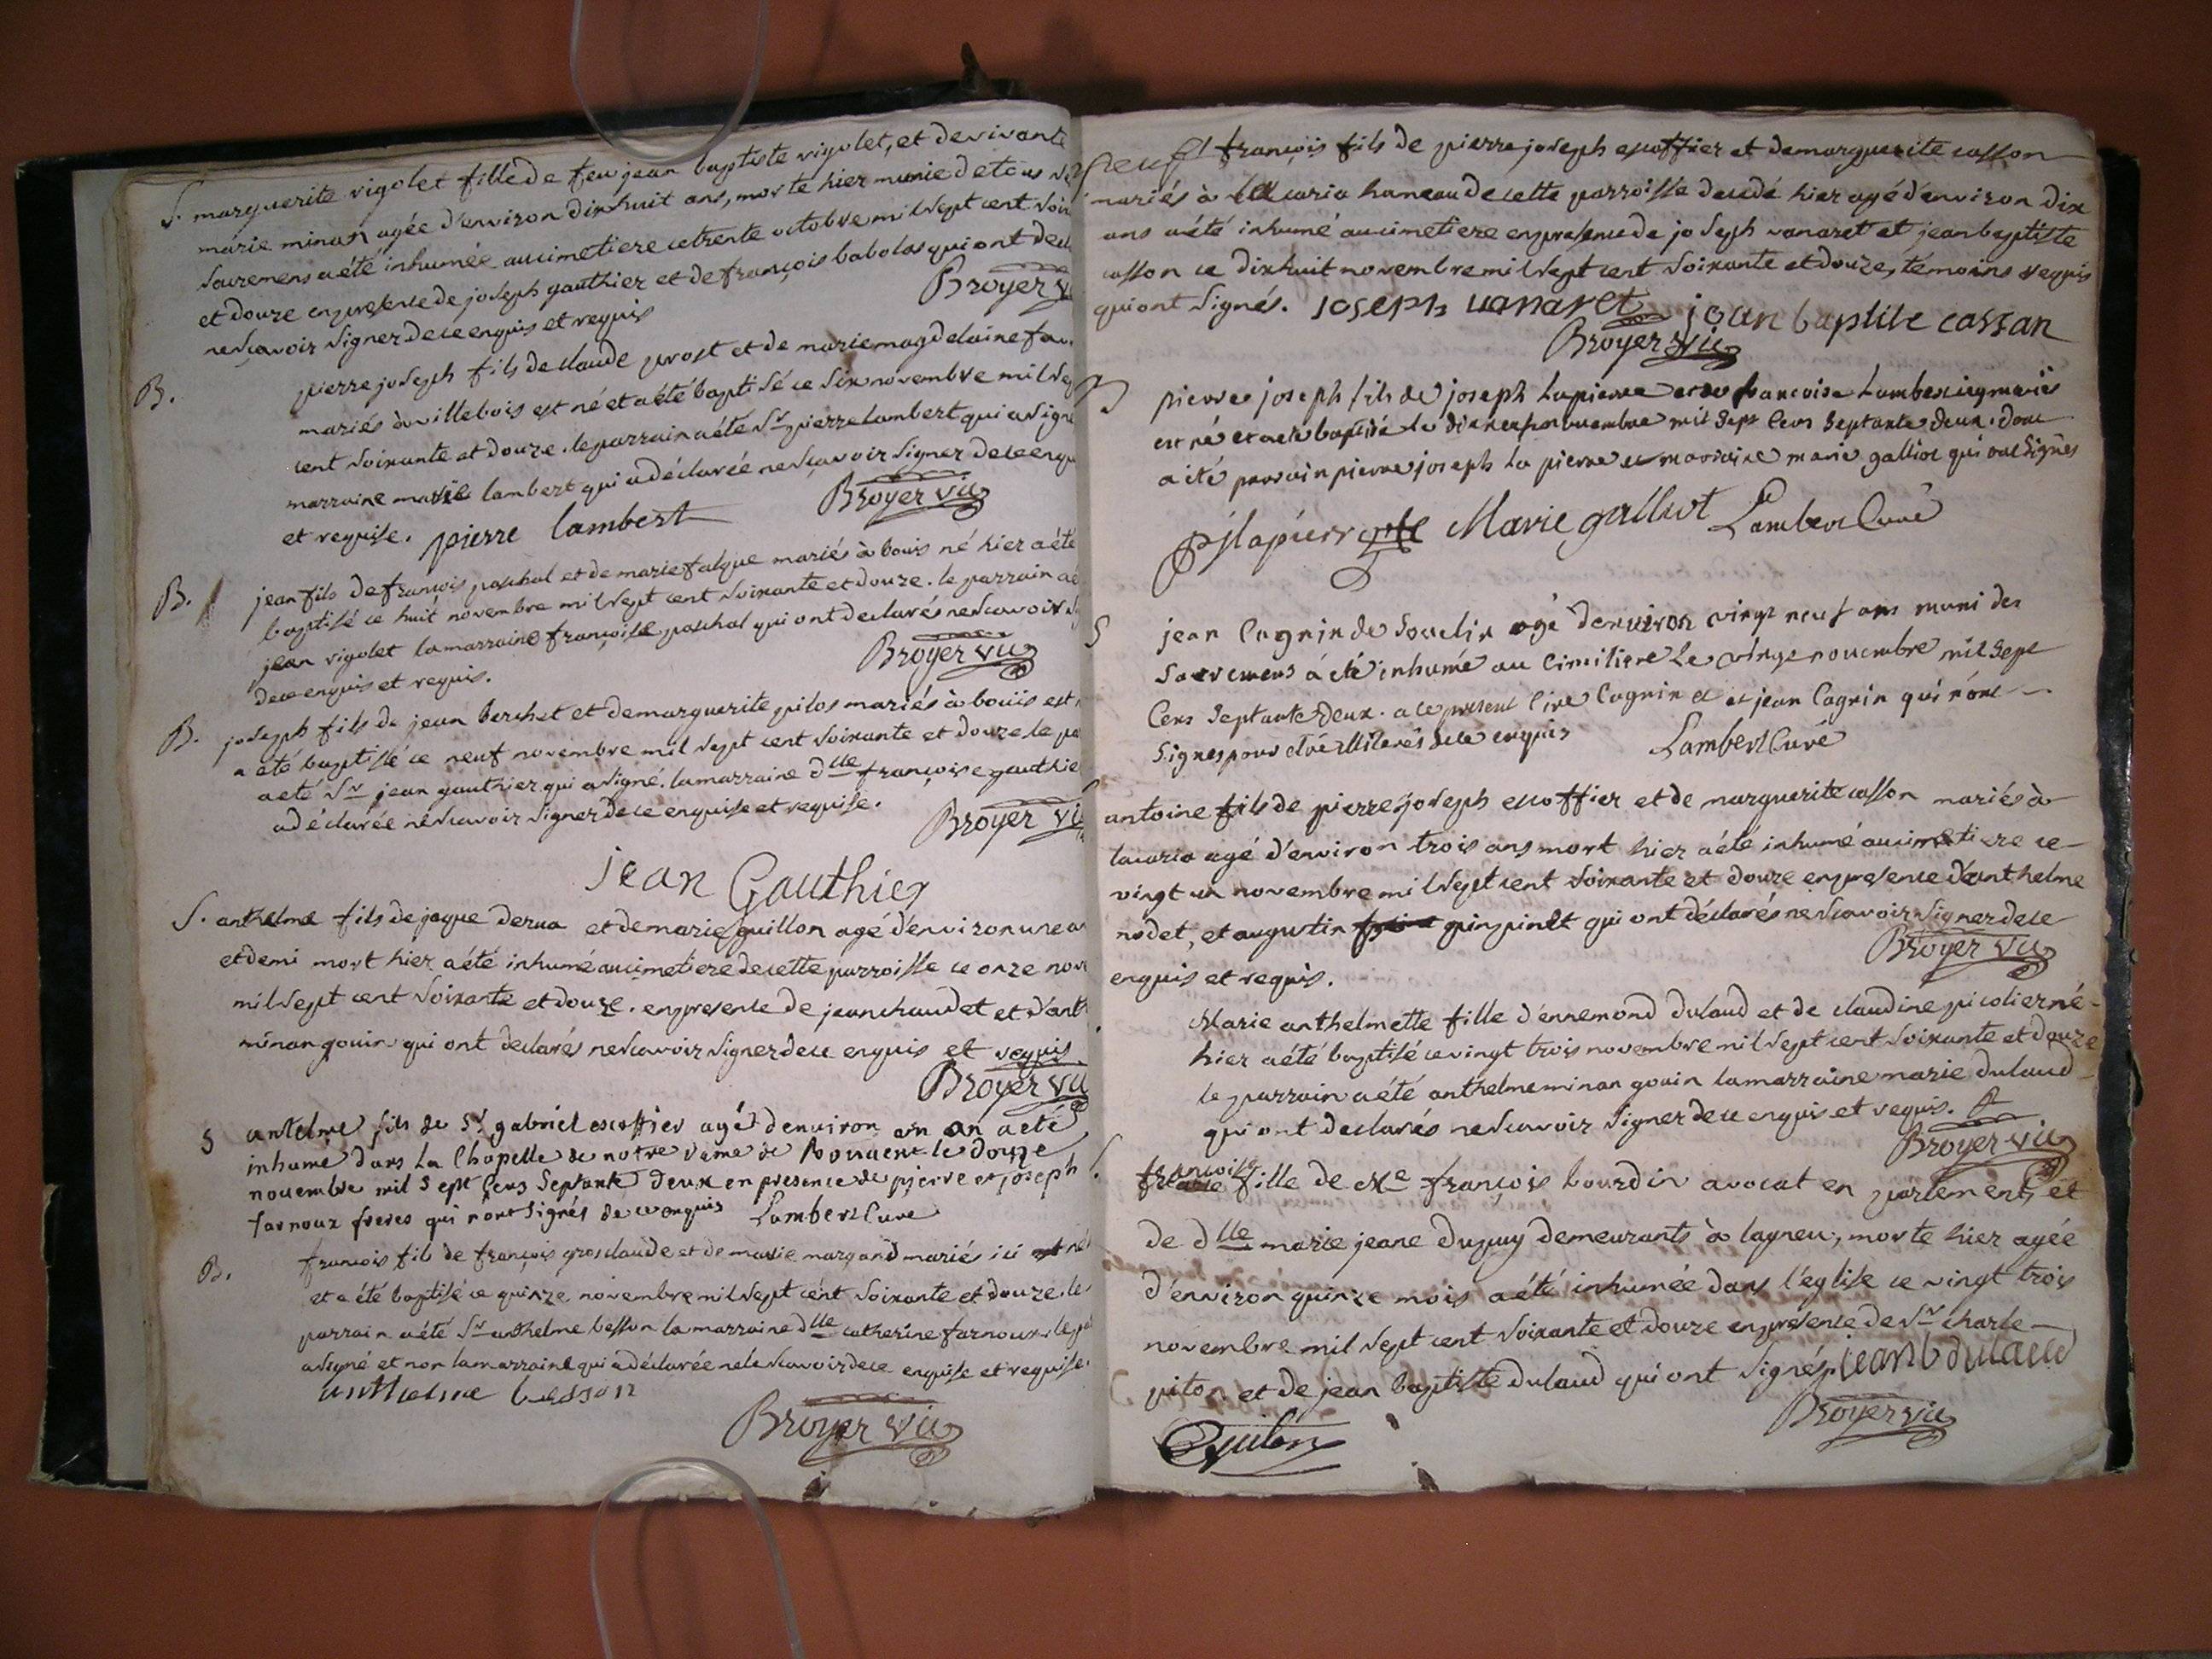 S. marguerite vigolet fille de feu jean baptiste vigolet, et de vivante
marie minan agée d'environ dix huit ans, morte hier munie de tous
sacremens a été inhumée au cimetiere ce trente octobre mil sept cent soix
et douze en presence de joseph gauthier et de françois babolas qui ont decl
ne sçavoir signer de ce enquis et requis
Broyer vic
B. pierre joseph fils de claude prost et de marie magdelaine
mariés à villebois est né et a été baptisé ce six novembre mil sep
cent soixante et douze. le parrain a été Sr pierre lambert qui a signé
marraine marie lambert qui a déclarée ne sçavoir signer de ce enqu
et requise. pierre lambert Broyer vic
B. jean fils de françois paschal et de marie falque mariés à bouis né hier a été
baptisé ce huit novembre mil sept cent soixante et douze. le parrain a é
jean vigolet la marraine françoise paschal qui ont declarés ne sçavoir
de ce enquis et requis.
Broyer vic
B. joseph fils de jean berchet et de marguerite pilos mariés à bouis est
a été baptisé ce neuf novembre mil sept cent soixante et douze le pa
a été Sr jean gauthier qui a signé. la marraine dlle françoise gauthie
a déclarée ne sçavoir signer de ce enquise et requise.
Broyer vic
jean Gauthier
S. anthelme fils de jaque derua et de marie guillon agé d'environ une a
et demi mort hier a été inhumé au cimetiere de cette parroisse ce onze nov
mil sept cent soixante et douze. en presence de jean chaudet et d'ant
minan gouin qui ont declarés ne sçavoir signer de ce enquis et requis
Broyer vic
S antelme fils de Sr gabriel escoffier agé d'environ un an a eté
inhumé dans la Chapelle de notre dame de Bouvent le douze
novembre mil sept cens septante deux en presence de pierre et joseph
farnoux freres qui n'ont signés de ce enquis Lambert Curé
B. françois fils de françois grosclaude et de marie margand mariés ici est né
et a été baptisé ce quinze novembre mil sept cent soixante et douze. le
parrain a été Sr anthelme besson la marraine dlle catherine farnoux. le pa
a signé et non la marraine qui a déclarée ne le sçavoir de ce enquise et requise
anthelme besson
Broyer vic
françois fils de pierre joseph escoffier et de marguerite casson
mariés à lacaria hameau de cette parroisse decedé hier agé d'environ dix
neuf
ans a été inhumé au cimetiere en presence de joseph vanaret et jean baptiste
casson ce dix huit novembre mil sept cent soixante et douze, témoins requis
qui ont signés. joseph vanaret jean baptiste cassan
Broyer vic
B pierre joseph fils de joseph Lapierre et de francoise Lambert mariés
est né et a eté baptisé le dix neuf novembre mil sept cens septante deux. dont
a été parrain pierre joseph La pierre et marraine marie galliot qui ont signés
pj lapierre Marie galliot Lambert Curé
S jean Cagnin de Souclin agé d'environ vingt neuf ans muni des
sacremens à eté inhumé au cimitiere le vingt novembre mil sept
cens septante deux. a ce present Cagnin et jean Cagnin qui n'ont
signés pour etre illiterés de ce enquis Lambert Curé
antoine fils de pierre joseph escoffier et de marguerite casson mariés à
lacaria agé d'environ trois ans mort hier a été inhumé au cimetiere ce
vingt un novembre mil sept cent soixante et douze en presence d'anthelme
nodet, et augustin pinpinet qui ont déclarés ne sçavoir signer de ce
enquis et requis.
Broyer vic
Marie anthelmette fille d'ennemond dulaud et de claudine picolier né
hier a été baptisé ce vingt trois novembre mil sept cent soixante et douze
le parrain a été anthelme minan gouin la marraine marie dulaud
qui ont declarés ne sçavoir signer de ce enquis et requis.
Broyer vic
S. françoise fille de Me françois bourdin avocat en parlement, et
de dlle marie jeane dupuy demeurants à lagneu, morte hier agée
d'environ quinze mois a été inhumée dans l'eglise ce vingt trois
novembre mil sept cent soixante et douze en presence de Sr charle
piton et de jean baptiste dulaud qui ont signés. jean b dulaud
Broyer vic